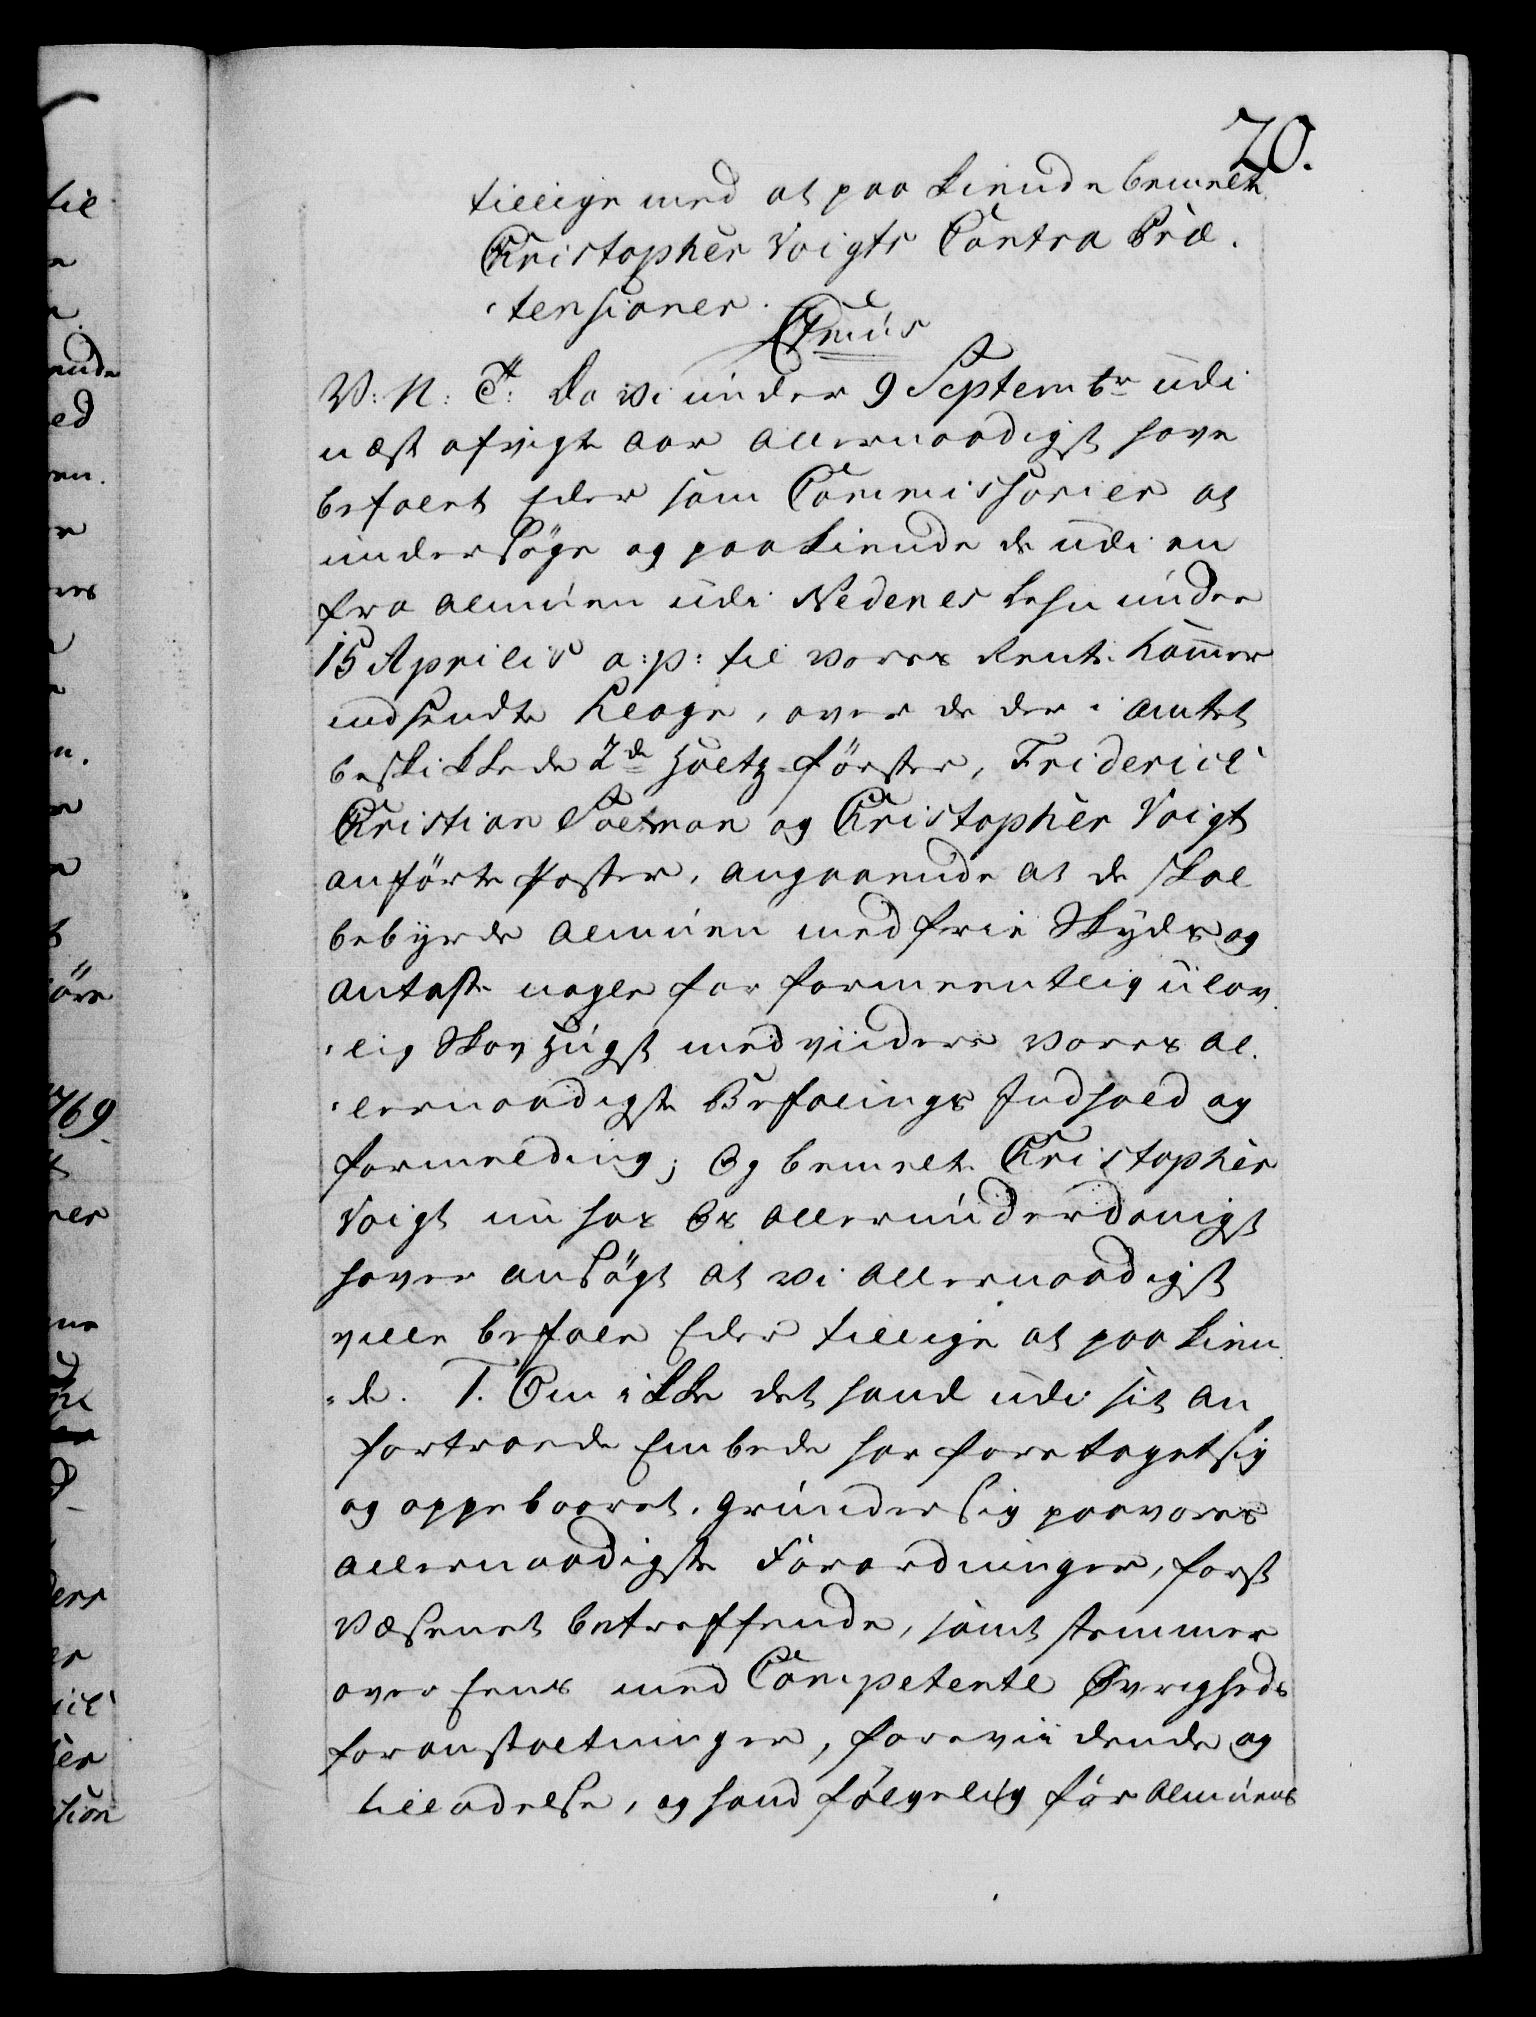 20.
tillige med at paa kiende bemelte
Christopher Voigts Contra Præ-
-tensioner.
Cħrnus
V: N: G: Da vi under 9 Septembr udi
næst afvigte Aar allernaadigst have
befalet Eder som Commissarier at
undersøge og paakiende de udi en
fra Almuen udi Nedenes Lehn under
15 Aprilis a:p: til vores Rente Kammer
indsendte Klage, over de der i Amtet
beskikkede 2de Holtz-Førster, Friderich
Christian Saltman og Christopher Voigt
anførte Poster, angaaende at de skal
bebyrde Almuen med frie Skyds og
antaste nogle for formeentlig ulov-
-lig Skov Hugst med viidere vores al-
-lernaadigste Befalings Indhold og
formelding; Og bemelte Christopher
Voigt nu hos Os allerunderdanigst
haver ansøgt at vi allernaadigst
ville befale Eder tillige at paa kien-
-de. 1. Om ikke det hand udi sit an
fortroede Embede har foretaget sig
og oppebaaret, grunder sig paa vores
allernaadigste Forordninger, forst
væsenet betreffende, samt stemmer
over Eens med Competente Øvrigheds
foranstaltninger, foreviidende og
tilladelse, og hand følgelig for Almuens